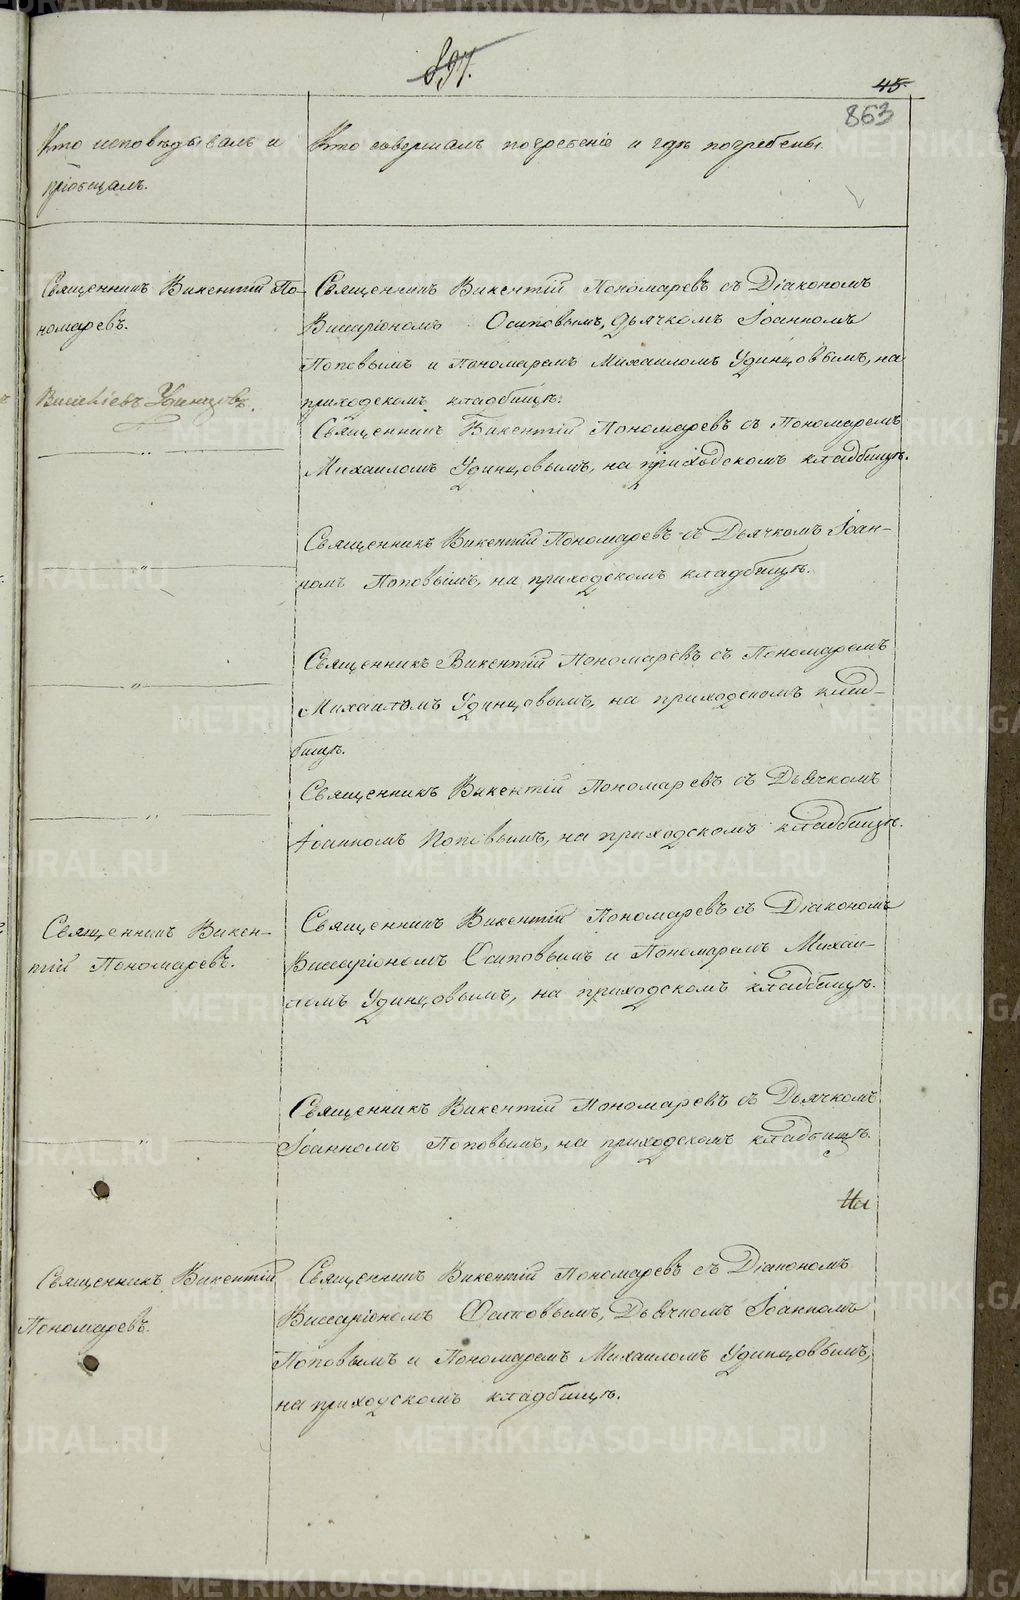 897.
45
863
Кто исповѣдывалъ и
пріобщалъ.
Кто совершалъ погребеніе и гдѣ погребены
Священникъ Викентій По-
номаревъ.
Священникъ Викентій Пономаревъ съ Діакономъ
Виссаріономъ Осиповымъ, Дьячкомъ Іоанномъ
Поповымъ и Пономаремъ Михаиломъ Удинцовымъ, на
приходскомъ кладбищѣ.
Удинцовъ.
Священникъ Викентій Пономаревъ съ Пономаремъ
Михаиломъ Удинцовымъ, на приходскомъ кладбищѣ.
— „ —
Священникъ Викентій Пономаревъ съ Дьячкомъ Іоан-
номъ Поповымъ, на приходскомъ кладбищѣ.
— „ —
Священникъ Викентій Пономаревъ съ Пономаремъ
Михаиломъ Удинцовымъ, на приходскомъ клад-
бищѣ.
— „ —
Священникъ Викентій Пономаревъ съ Дьячкомъ
Іоанномъ Поповымъ, на приходскомъ кладбищѣ.
— „ —
Священникъ Викен-
тій Пономаревъ.
Священникъ Викентій Пономаревъ съ Діакономъ
Виссаріономъ Осиповымъ и Пономаремъ Михаи-
ломъ Удинцовымъ, на приходскомъ кладбищѣ.
Священникъ Викентій Пономаревъ съ Дьячкомъ
Іоанномъ Поповымъ, на приходскомъ кладбищѣ.
— „ —
На
Священникъ Викентій
Пономаревъ.
Священникъ Викентій Пономаревъ съ Діакономъ
Виссаріономъ Осиповымъ, Дьячкомъ Іоанномъ
Поповымъ и Пономаремъ Михаиломъ Удинцовымъ,
на приходскомъ кладбищѣ.
METRIKI.GASO-URAL.RU